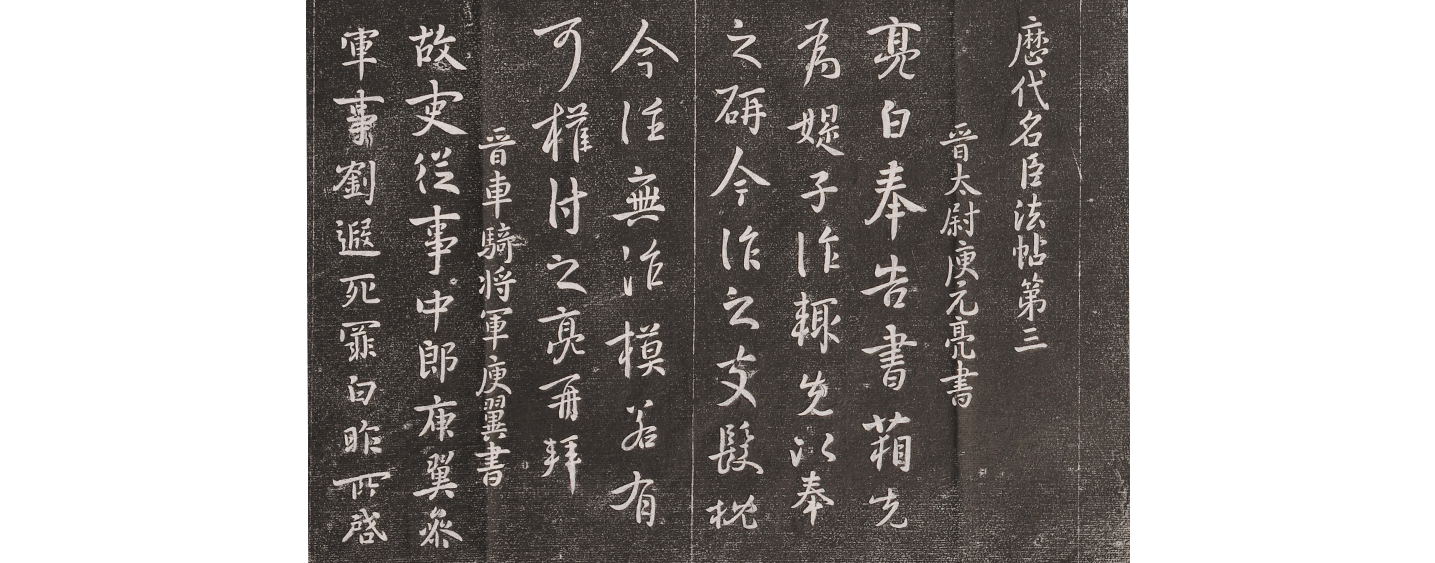 歷代名臣法帖第三
晉太尉庾元亮書
亮白奉告書箱先
為媞子作輙先以奉
之研今作之支髮枕
今往無作模若有
可權付之亮再拜
晉車騎將軍庾翼書
故吏從事中郎庾翼參
軍事劉遐死罪白昨所啓